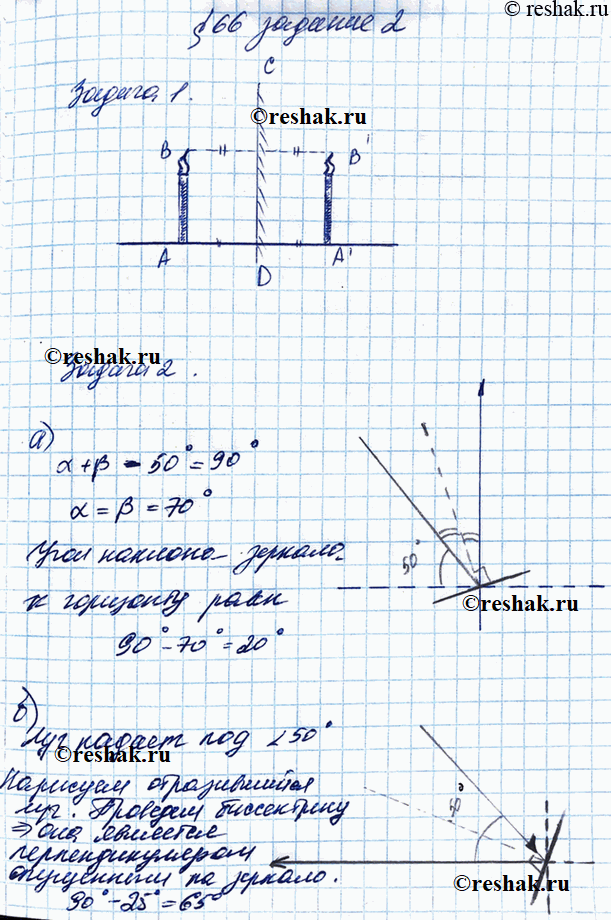 © reshak.ru
§66 задание 2
C
Задача 1.
©reshak.ru
B B'
A D A'
©reshak.ru
Задача 2.
а)
α+β - 50° = 90°
α = β = 70°
Угол наклона зеркала
к горизонту равн
90° - 70° = 20°
50°
©reshak.ru
б)
Луч падает под ∠50°
Нарисуем отразившийся
луч. Проведем биссектрису
⇒ она является
перпендикуляром
опущенным на зеркало.
90° - 25° = 65°
50°
©reshak.ru